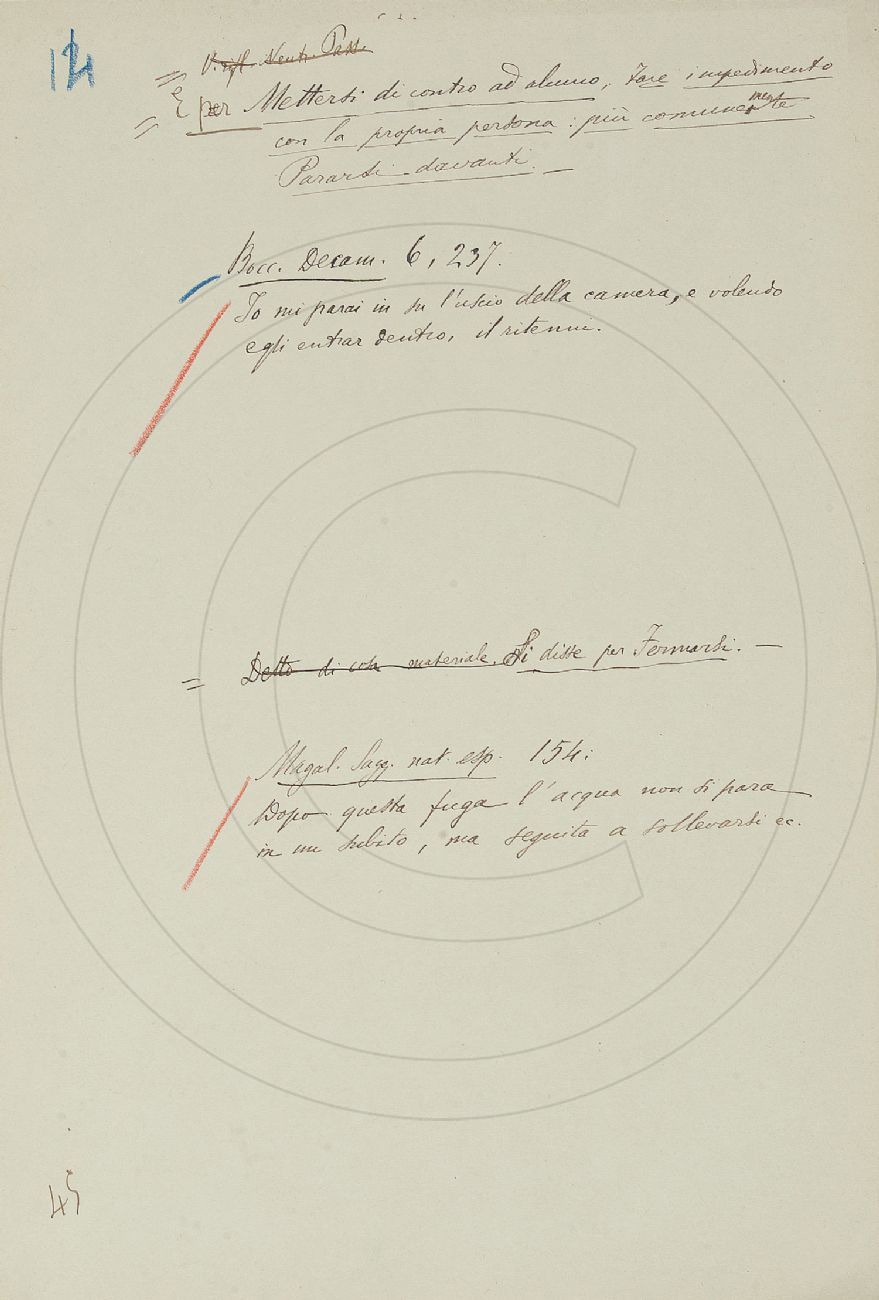 124
V. rifl. Neutr. Pass.
= e per Mettersi di contro ad alcuno, Fare impedimento
= con la propria persona: più comunemente
Pararsi davanti. —
Bocc. Decam. 6, 237.
Io mi parai in su l'uscio della camera, e volendo
egli entrar dentro, il ritenni.
= Detto di cosa materiale. Si disse per Fermarsi. —
Magal. Sagg. nat. esp. 154:
Dopo questa fuga l'acqua non si para
in un subito, ma seguita a sollevarsi ec.
45